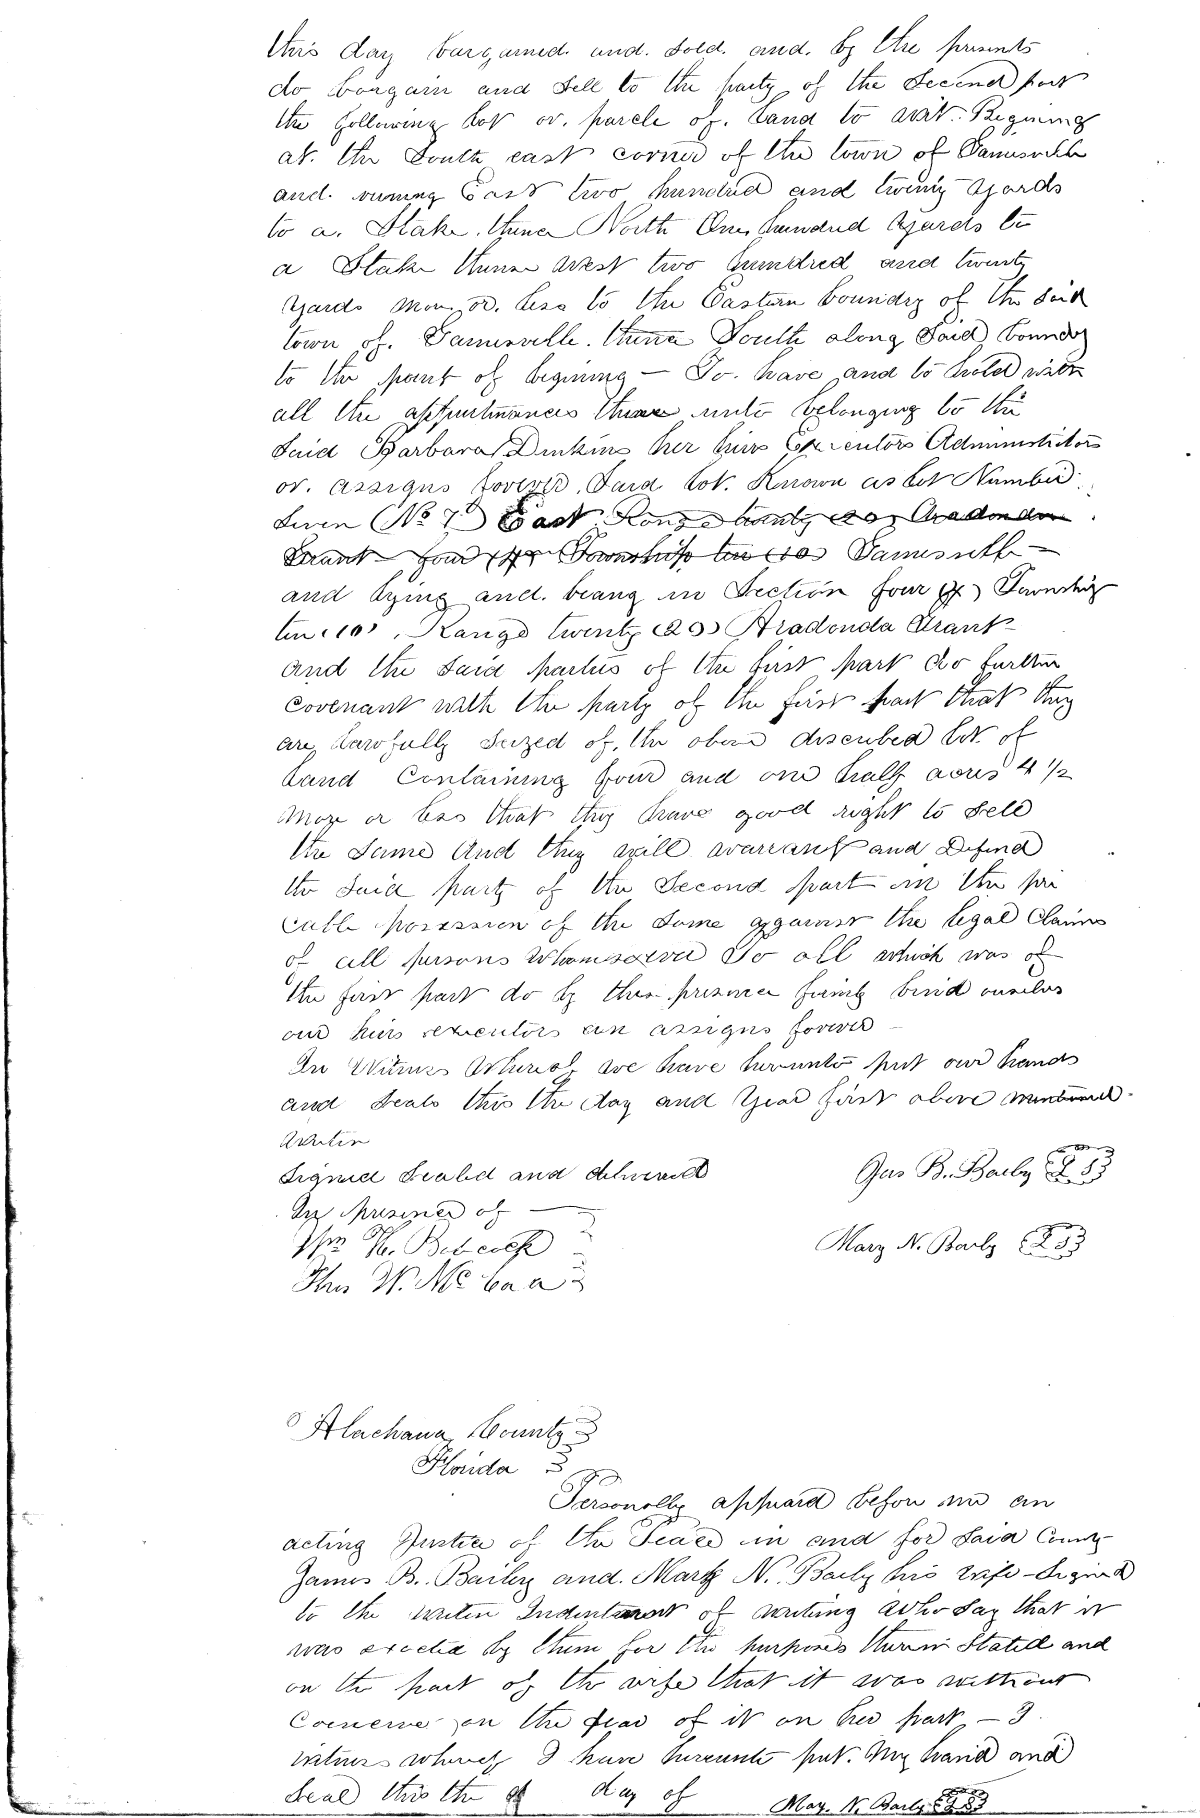 this day bargained. and. Sold. and. by the presents
do bargain and Sell to the party of the Second part
the following Lot or. parcle of. Land to wit. Begining
at. the South east corner of the town of Gainesville
and. runing East two hundred and twenty Yards
to a. Stake. thence North One hundred Yards to
a Stake thence West two hundred and twenty
Yards More or. less to the Eastern boundry of the Said
town of. Gainesville. thence South along Said boundry
to the point of begining — To. have and to hold with
all the appurtinances there unto belonging to the
Said Barbara Dinkins her heirs Executors Administrators
or. assigns forever. Said Lot. Known as Lot Number
Seven (No 7) East Range twenty (20) Aradondo
Grant four (4) Township ten (10) Gainesville —
and lying and. being in Section four (4) Township
ten (10), Range twenty (20) Aradonda Grant
and the Said parties of the first part do further
Covenant with the party of the first part that they
are Lawfully Seized of. the above described Lot of
Land Containing four and one half acres 4 1/2
More or less that they have good right to Sell
the Same And they will warrant and Defend
the Said party of the Second part in the pri
cable possession of the Same against the legal Claims
of all persons Whomsoever To all which was of
the first part do by these presence firmly bind ourselves
our heirs executors an assigns forever —
In Witness Whereof we have hereunto put our hands
and Seals this the day and Year first above mentioned
writen
Signed Sealed and delivered Jas B. Baily {L S}
In presence of —
Wm H. Babcock Mary N. Baily {L S}
Thos W. Mc Caa
Alachawa County }
Florida }
Personally appeard before me an
acting Justice of the Peace in and for Said County
James B. Bailey and. Mary N. Baily his wife - Signed
to the writen Indenture of writing Who Say that it
was exected by them for the purposes therein Stated and
on the part of the wife that it was without
on the fear of it on her part —
witness whereof I have hereunto put. My hand and
Seal this the day of May. N. Baily {L S}